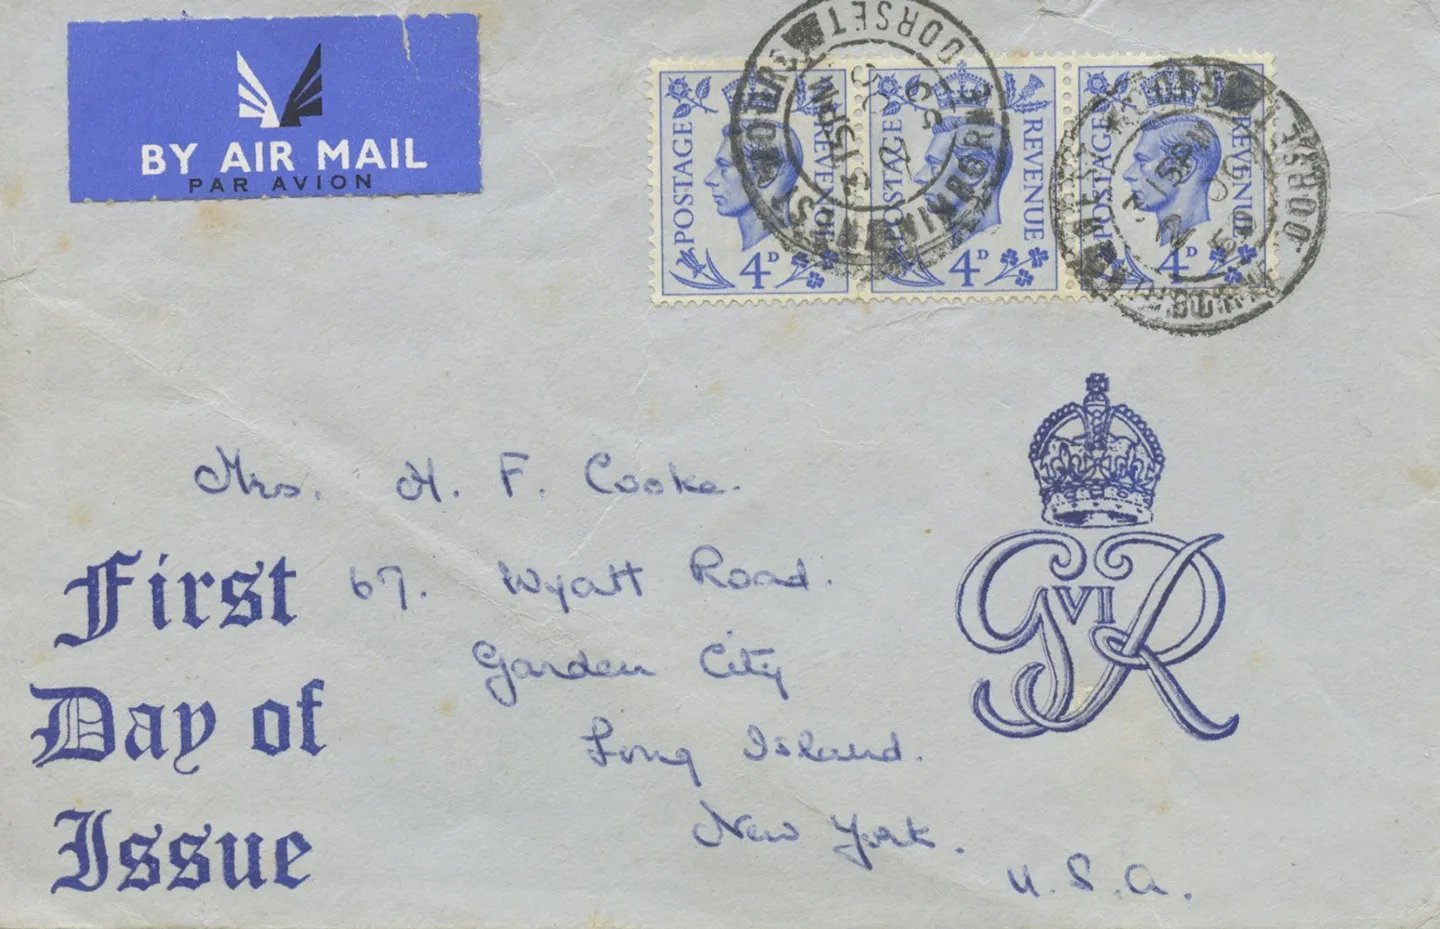 BY AIR MAIL
PAR AVION
POSTAGE REVENUE 4D
POSTAGE REVENUE 4D
POSTAGE REVENUE 4D
WIMBORNE DORSET
3 15 PM
2 OC
50
Mrs. H. F. Cooke.
67. Wyatt Road.
Garden City
Long Island.
New York.
U.S.A.
First
Day of
Issue
G VI R